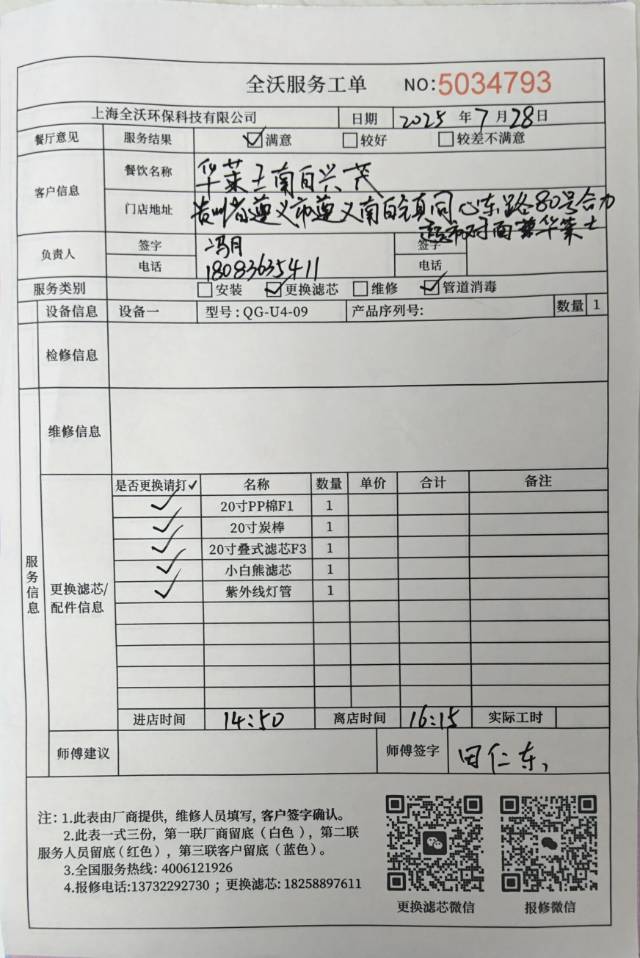 全沃服务工单 NO:5034793
上海全沃环保科技有限公司 日期 2025 年 7 月 28 日
餐厅意见 服务结果 ☑满意 □较好 □较差不满意
客户信息 餐饮名称 华莱士南白兴茂
门店地址 贵州省遵义市遵义南白镇同心东路80号合力
超市对面 华莱士
负责人 签字 冯月 签字
电话 18083635411 电话
服务类别 □安装 ☑更换滤芯 □维修 ☑管道消毒
设备信息 设备一 型号：QG-U4-09 产品序列号: 数量 1
检修信息
维修信息
服务信息
更换滤芯/配件信息
是否更换请打✓ 名称 数量 单价 合计 备注
✓ 20寸PP棉F1 1
✓ 20寸炭棒 1
✓ 20寸叠式滤芯F3 1
✓ 小白熊滤芯 1
✓ 紫外线灯管 1
进店时间 14:50 离店时间 16:15 实际工时
师傅建议 师傅签字 田仁东
注：1.此表由厂商提供，维修人员填写，客户签字确认。
2.此表一式三份，第一联厂商留底（白色），第二联
服务人员留底（红色），第三联客户留底（蓝色）。
3.全国服务热线：4006121926
4.报修电话:13732292730 ；更换滤芯: 18258897611
更换滤芯微信 报修微信